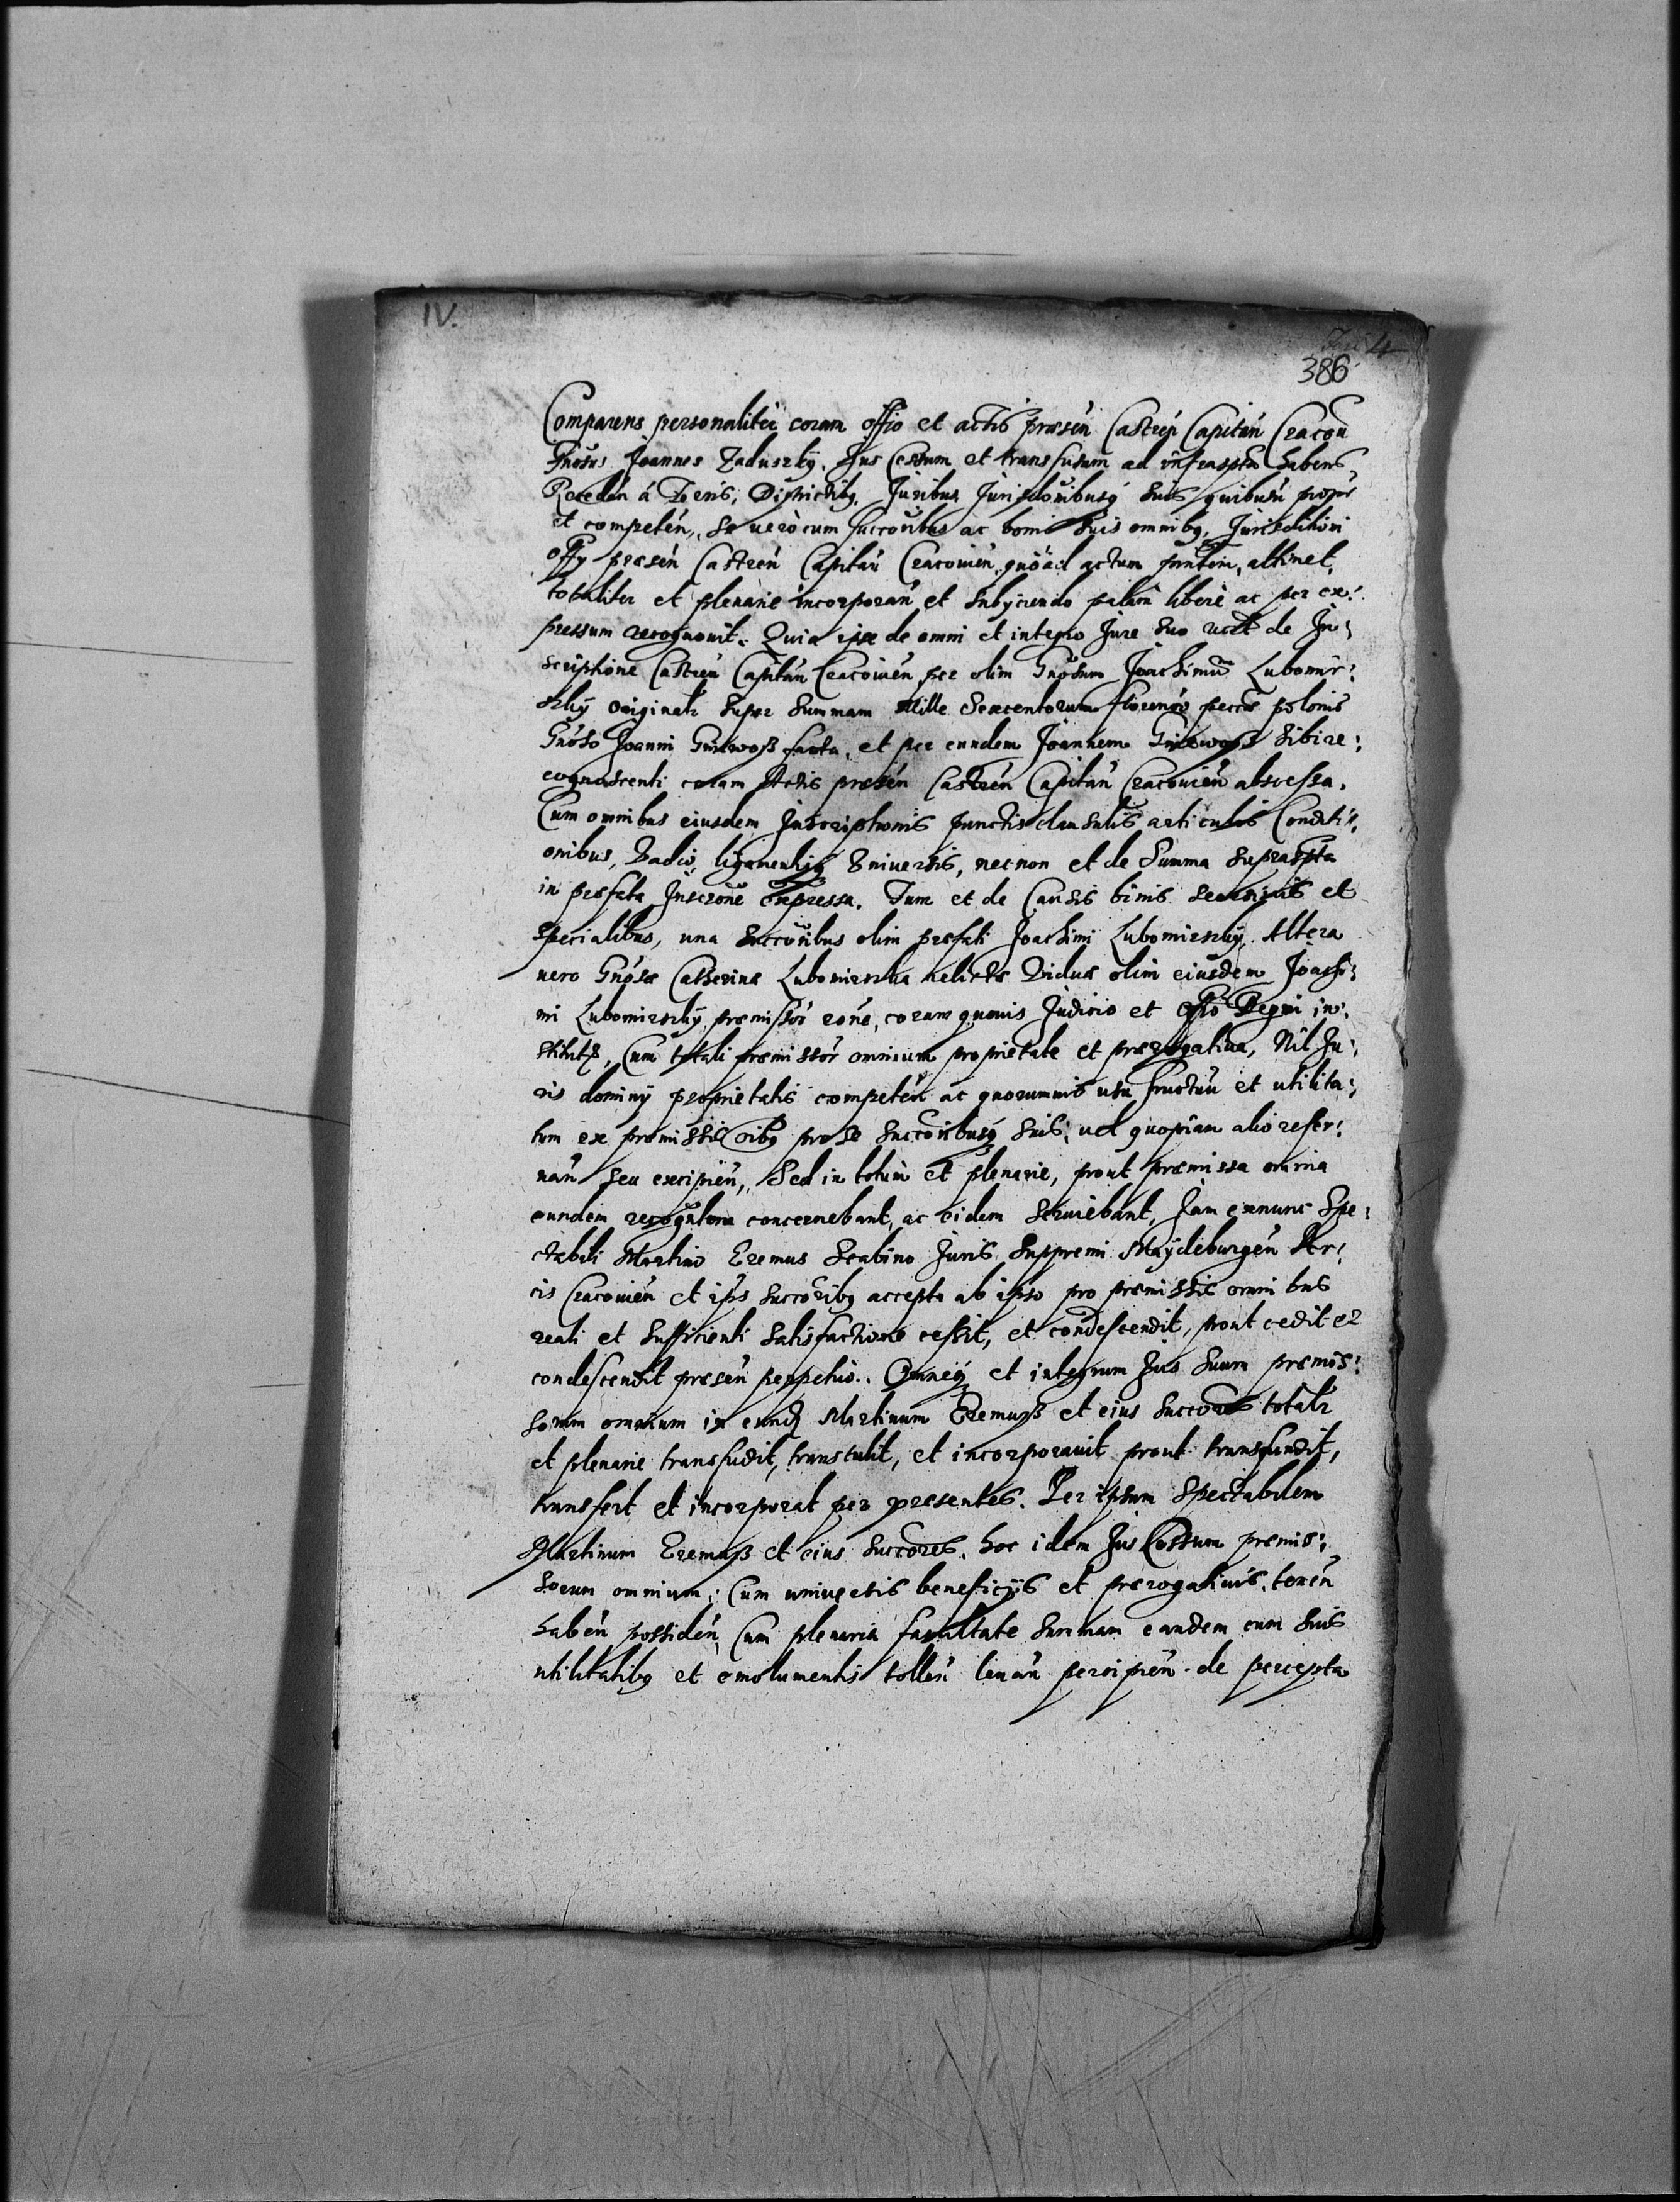 IV.
4
386
Comparens personaliter coram offo et actis præsen Castren Capitan Cracou
Gnosus Joannes Zaduszky. Jus Cessum et transfusum ad infraspta habens,
Receden á Terris, Districtibq Juribus Jurisdonibusq suis quibusu proprijs
et competen, Se uerò cum succoribus ac bonis suis omnibq, Jurisditioni
offy præsen Castren Capitan Cracouien, quòad actum pntem, attinet,
totaliter et plenarie incorporan et subyciendo palàm liberè ac per ex:
pressum recognouit. Quia ipse de omni et integro Jure suo ucet de In:
scriptione Castren Capitan Cracouien per olim Gnosum Joachimū Lubomir:
szky originalr super Summam Mille Sexcentorum florenor pecce polonis
Gnoso Joanni Gniewoß facta, et per eundem Joannem Gniewoß sibi re:
cognoscenti coram Actis presen Castren Capitan Cracouien abscessa.
Cum omnibus eiusdem Inscriptionis punctis clausulis articulis Conditi:
onibus, Vadio, ligamentisq Vniuersis, necnon et de Summa supraspta
in præfata Inscrone expressa. Tum et de Causis binis
specialibus, una Succoribus olim præfati Joachimi Lubomirszky, Altera
uero Gnosæ Catherinæ Lubomirszka relictæ Viduæ olim eiusdem Joachi:
mi Lubomirszky præmissor rone, coram quouis Judicio et Offo Regni in:
stitutq, Cum totali præmissor omnium proprietate et prærogatiua, Nil Ju:
ris dominy proprietatis competen ac quorumuis usu fructuu et utilita:
tum ex præmissis oibq pro se succoribusq suis, uel quopiam alio reser:
uan seu excipien, Sed in totum et plenarie, prout præmissa omnia
eundem recogntem concernebant, ac eidem seruiebant, Jam exnunc Spe:
ctabili Martino Eremus Scabino Juris Suppremi Maydeburgen Ar:
cis Cracouien et ips succoribq accepta ab ipso pro præmissis omnibus
reali et sufficienti satisfactione cessit, et condescendit, prout cedit et
condescendit præsen perpetuò. Omneq et integrum Jus suum præmis:
sorum omnium in eundq Martinum Eremuß et eius succores totalr
et plenarie transfudit, transtulit, et incorporauit prout transfundit,
transfert et incorporat per præsentes. Per ipsum Spectabilem
Martinum Eremuß et eius succores. hoc idem Jus Cessum præmis:
sorum omnium: Cum uniuersis beneficijs et prærogatiuis, tenen
haben possiden, Cum plenaria facultate Summam eandem cum suis
utilitatibq et emolumentis tollen leuan percipien de percepta